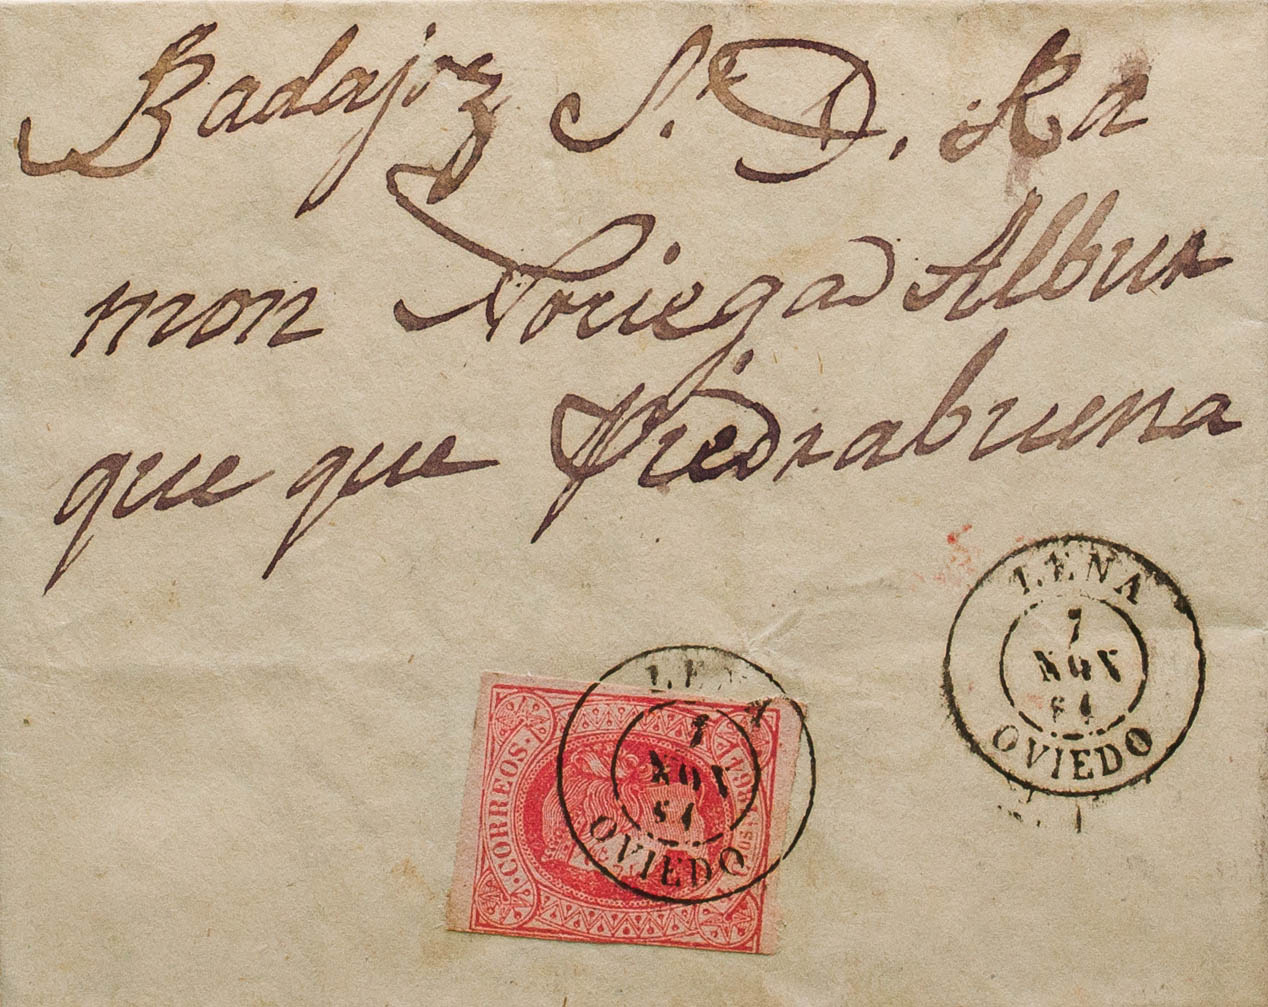 Badajoz Sr. D. Ra
mon Noriega Albur
que que Piedrabuena
LENA
7
NOV
64
OVIEDO
LENA
7
NOV
64
OVIEDO
CORREOS.
1864